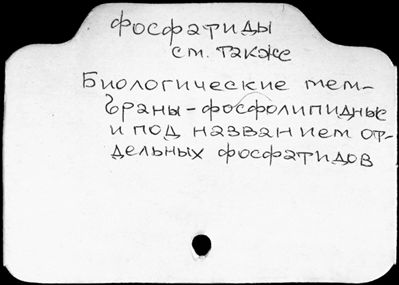 фосфатиды
см. также
Биологические мем-
браны-фосфолипидные
и под названием от-
дельных фосфатидов